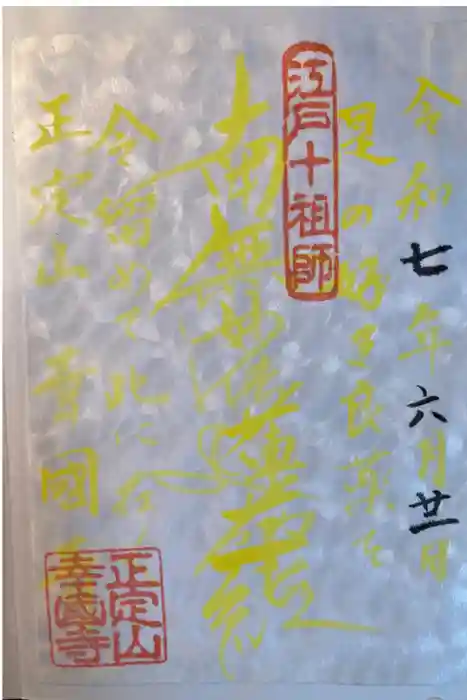 令和七年六月廿一日
是の好き良薬を
江戸十祖師
南無妙法蓮華経
今留めて此に在く
正定山 幸國寺
正定山
幸國寺